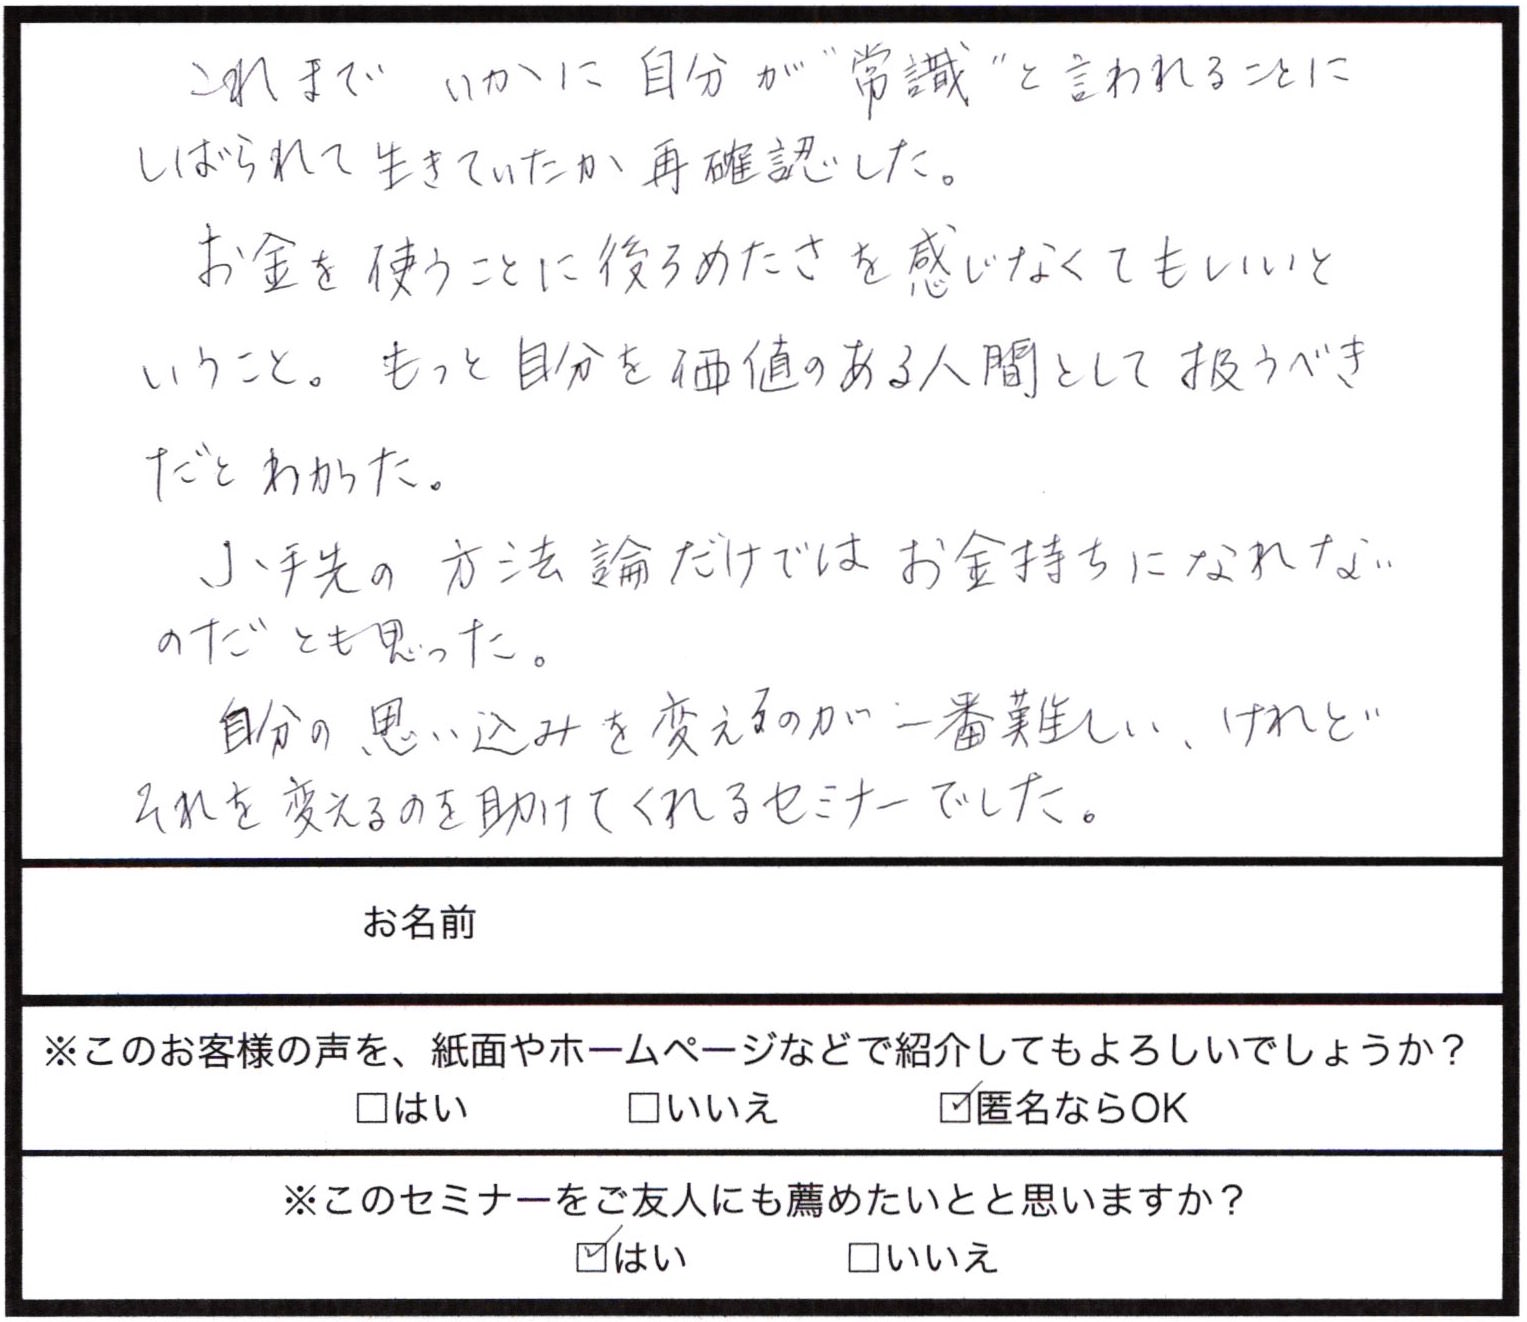 これまで いかに自分が"常識"と言われることに
しばられて生きていたか再確認した。
お金を使うことに後ろめたさを感じなくてもいいと
いうこと。もっと自分を価値のある人間として扱うべき
だとわかった。
小手先の方法論だけではお金持ちになれない
のだとも思った。
自分の思い込みを変えるのが一番難しい、けれど
それを変えるのを助けてくれるセミナーでした。
お名前
※このお客様の声を、紙面やホームページなどで紹介してもよろしいでしょうか？
□はい □いいえ ☑匿名ならOK
※このセミナーをご友人にも薦めたいとと思いますか？
☑はい □いいえ